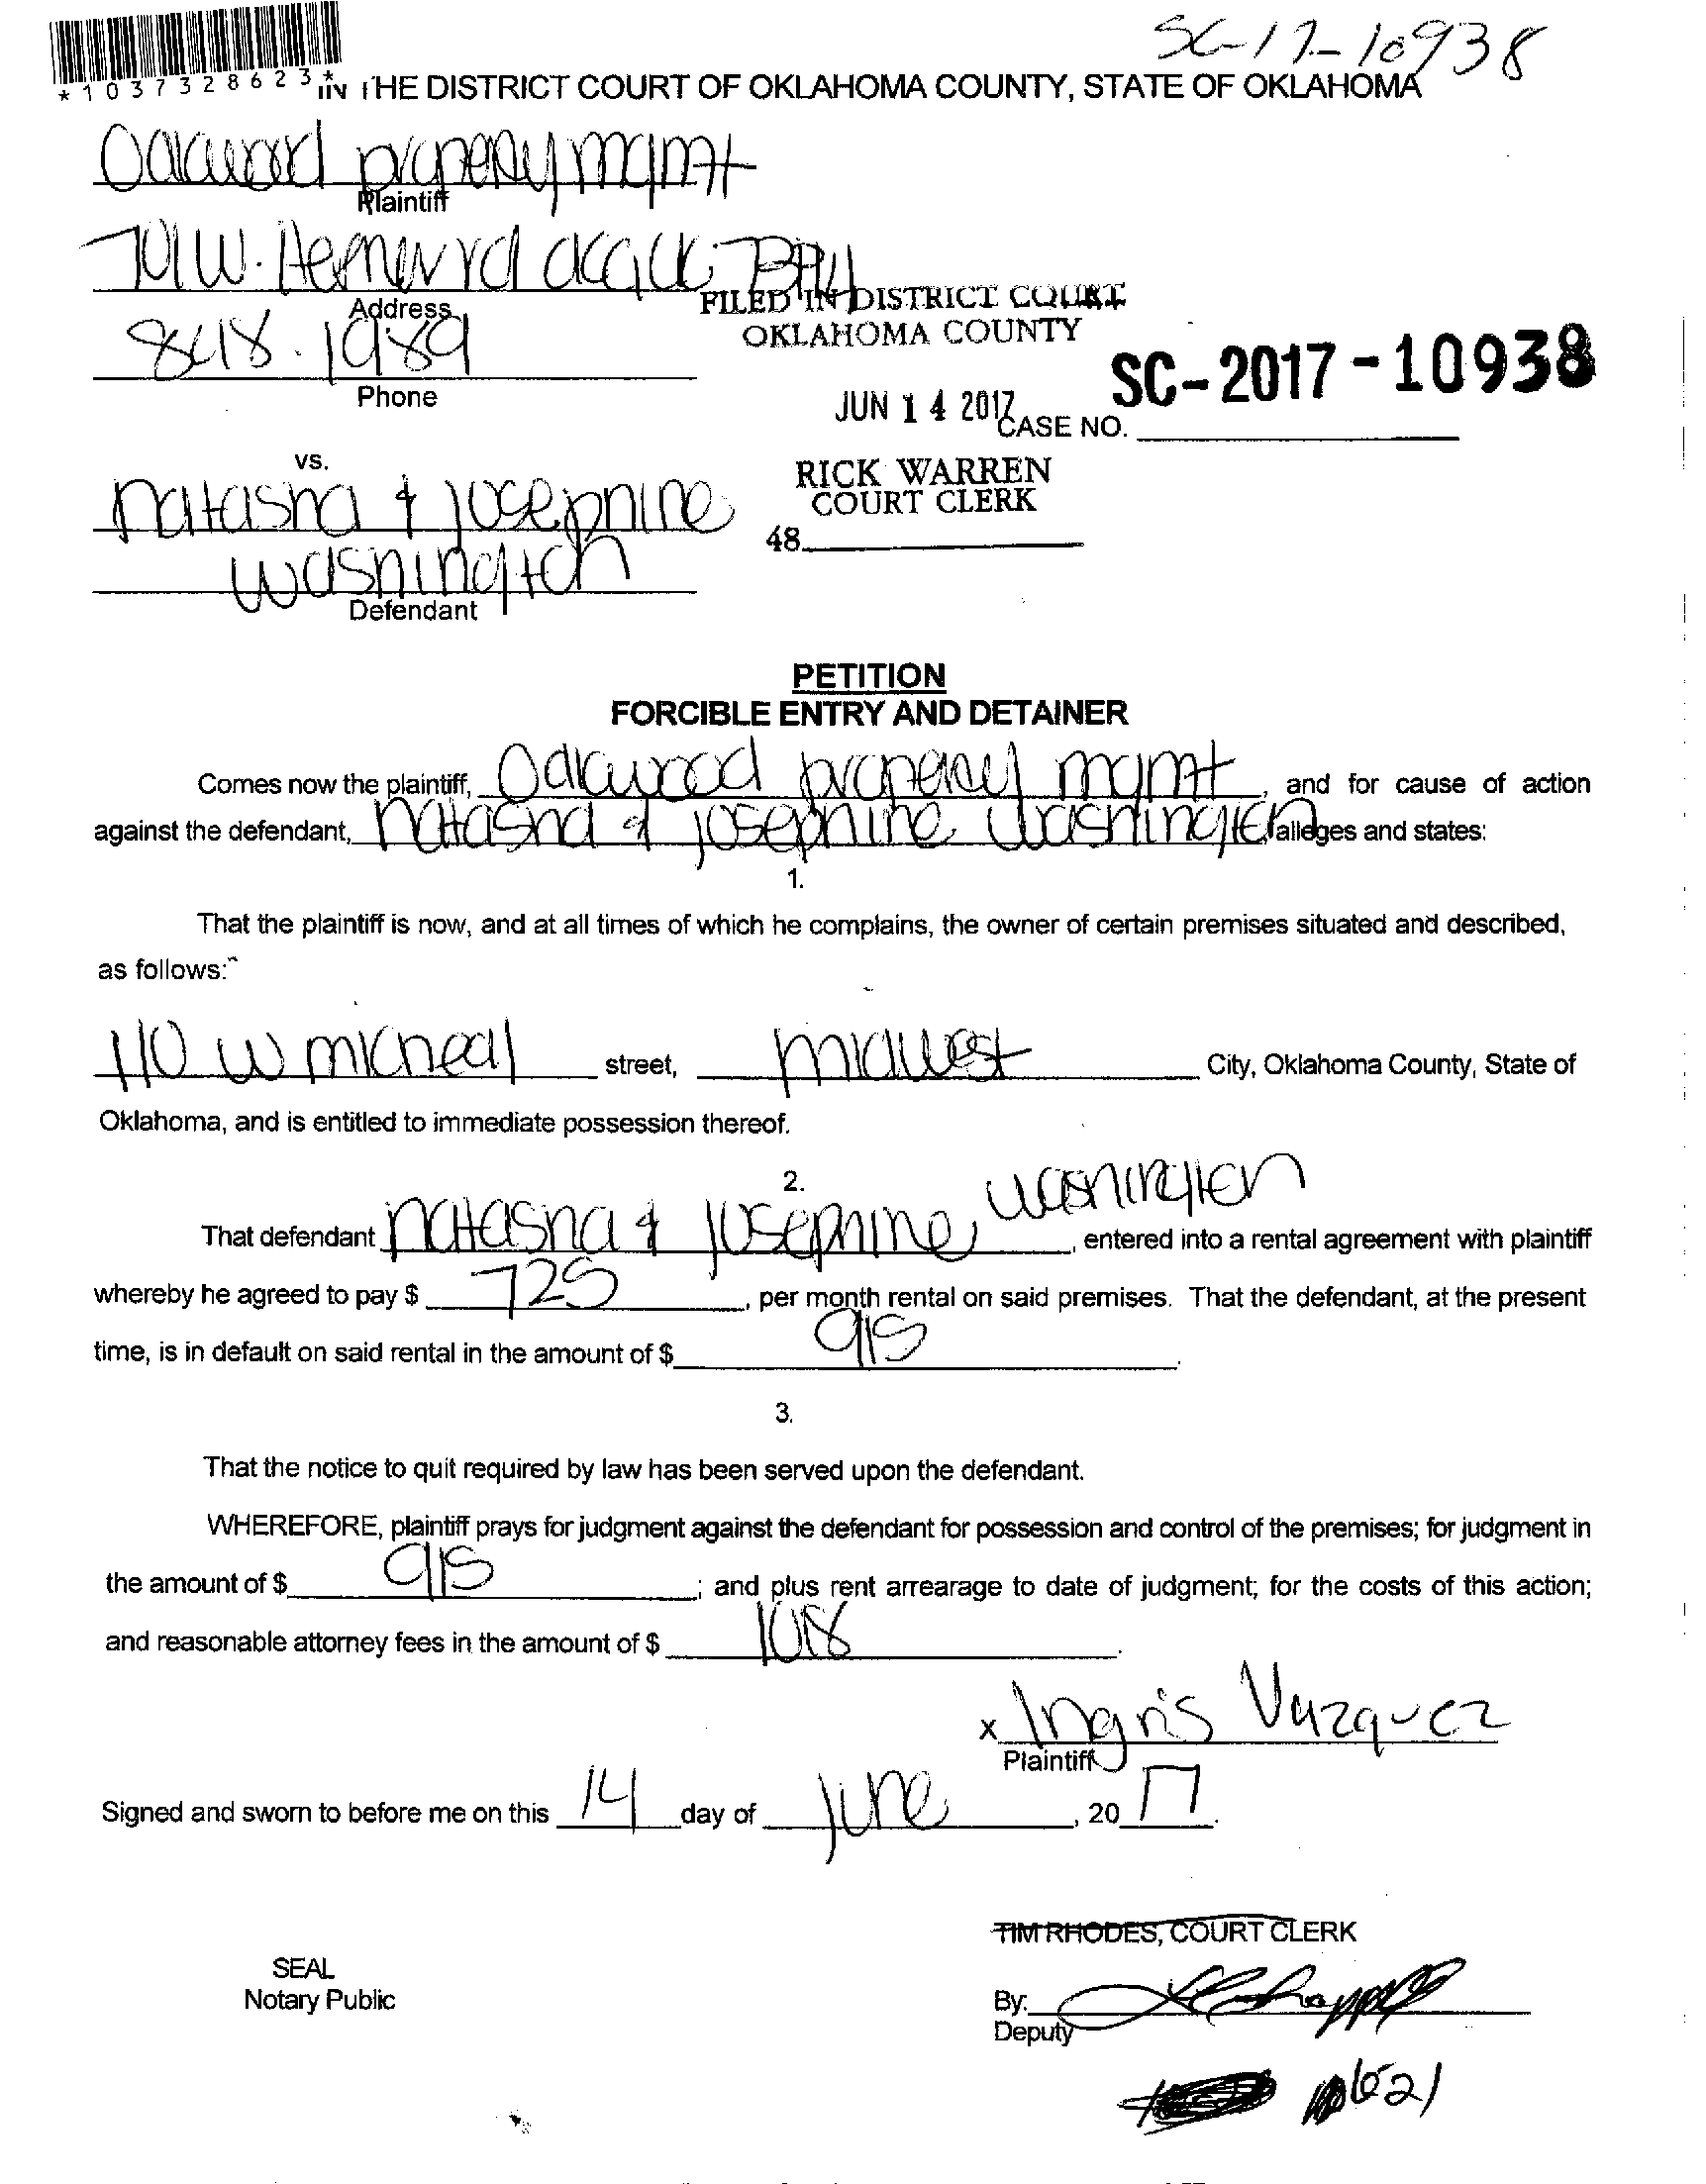 SC-17-10938
*1037328623*
IN THE DISTRICT COURT OF OKLAHOMA COUNTY, STATE OF OKLAHOMA
Oakwood property mgmt
Plaintiff
W.
Address
FILED IN DISTRICT COURT
OKLAHOMA COUNTY
848.1989
Phone
SC-2017-10938
JUN 14 2017
CASE NO.
vs.
RICK WARREN
COURT CLERK
natasha & josephine
48.
washington
Defendant
PETITION
FORCIBLE ENTRY AND DETAINER
Comes now the plaintiff, Oakwood property mgmt, and for cause of action
against the defendant, natasha & josephine washington alleges and states:
1.
That the plaintiff is now, and at all times of which he complains, the owner of certain premises situated and described,
as follows:
110 W micheal street, midwest City, Oklahoma County, State of
Oklahoma, and is entitled to immediate possession thereof.
2.
That defendant natasha & josephine washington, entered into a rental agreement with plaintiff
whereby he agreed to pay $ 725, per month rental on said premises. That the defendant, at the present
time, is in default on said rental in the amount of $ 915.
3.
That the notice to quit required by law has been served upon the defendant.
WHEREFORE, plaintiff prays for judgment against the defendant for possession and control of the premises; for judgment in
the amount of $ 915; and plus rent arrearage to date of judgment; for the costs of this action;
and reasonable attorney fees in the amount of $
x Ingris Vazquez
Plaintiff
Signed and sworn to before me on this 14 day of june, 2017.
TIM RHODES, COURT CLERK
SEAL
Notary Public
By:
Deputy